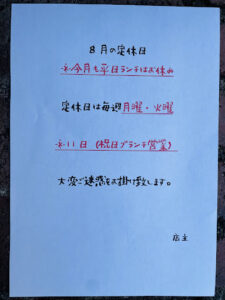 8月の定休日
※今月も平日ランチはお休み
定休日は毎週月曜・火曜
※11日(祝日ランチ営業)
大変ご迷惑をお掛け致します。
店主